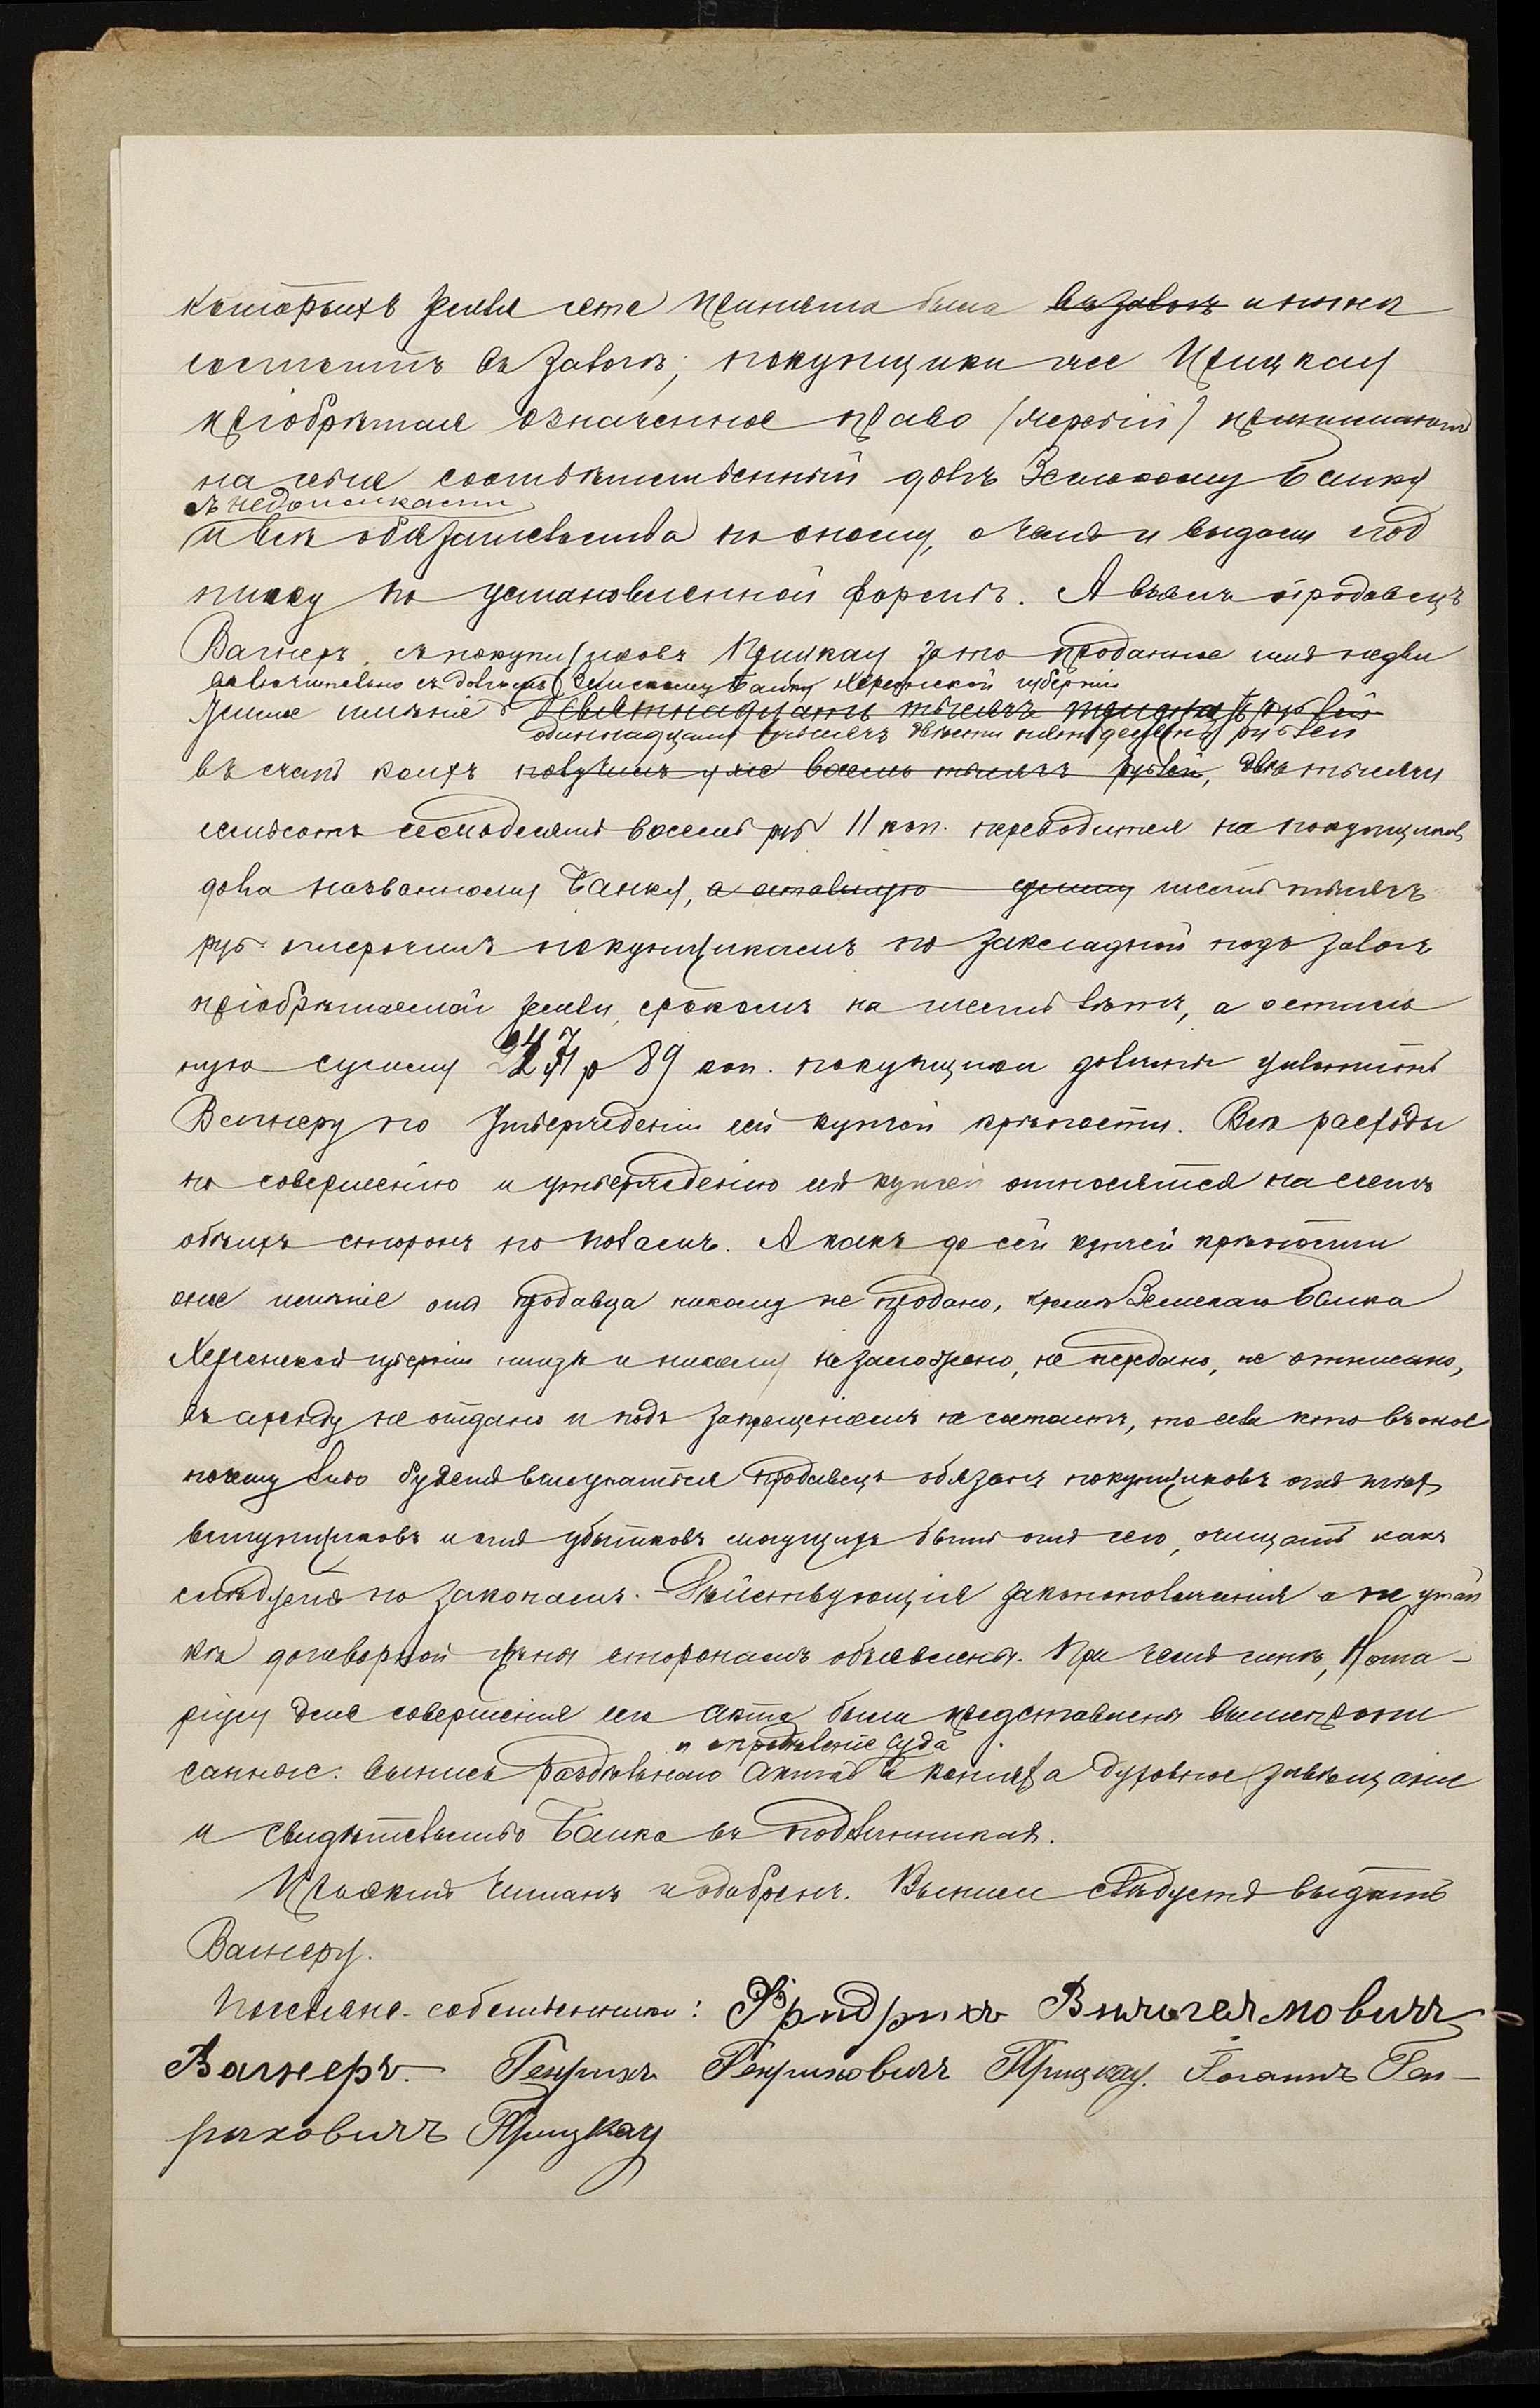 которыхъ земля сета принята была въ залогъ и нынѣ
состоитъ въ залогѣ; покупщики же Прицкау
пріобрѣтая означенное право (жеребій) принимаютъ
на себя соотвѣтственный долгъ Земскому Банку
съ недоимками
и всѣ обязательства по оному, о чемъ и выдаютъ под
писку по установленной формѣ. А взялъ продавецъ
Вагнеръ съ покупщиковъ Прицкау за то проданное имъ недви
включительно съ долгомъ Земскому Банку Херсонской губерніи
жимое имѣніе девятнадцать тысячъ рублей
одиннадцать тысячъ двѣсти рублей
въ счетъ коихъ получилъ уже восемь тысячъ рублей, двѣ тысячи
семьсотъ семьдесятъ восемь руб 11 коп. переводится на покупщиковъ
долга названному Банку, а остальную сумму шесть тысячъ
руб отсрочилъ покупщикамъ по закладной подъ залогъ
пріобрѣтаемой земли, срокомъ на шесть лѣтъ, а осталь
ную сумму 2471 р 89 коп. покупщики должны уплатить
Вагнеру по утвержденіи сей купчей крѣпости. Всѣ расходы
по совершенію и утвержденію сей купчей относятся на счетъ
обѣихъ сторонъ по поламъ. А какъ до сей купчей крѣпости
оное имѣніе отъ продавца никому не продано, кромѣ Земскаго Банка
Херсонской губерніи нигдѣ и никому не заложено, не передано, не отписано,
въ аренду не отдано и подъ запрещеніемъ не состоитъ, то если кто въ оное
почему либо будетъ вступаться продавецъ обязанъ покупщиковъ отъ тѣхъ
вступщиковъ и отъ убытковъ могущихъ быть отъ сего, очищать какъ
слѣдуетъ по законамъ. Дѣйствующія законоположенія о не утай
кѣ договорной цѣны сторонамъ объявлены. При чемъ мнѣ, Нота-
ріусу для совершенія сего акта были представлены вышепропи
и опредѣленіе Суда
санное: выпись раздѣльнаго акта въ копіяхъ а духовное завѣщаніе
и свидѣтельство Банка въ подлинникахъ.
Проектъ читанъ и одобренъ. Выпись слѣдуетъ выдать
Вагнеру.
Поселяне-собственники: Фридрихъ Вильгельмовичъ
Вагнеръ. Генрихъ Генриховичъ Прицкау. Іоганнъ Ген-
риховичъ Прицкау